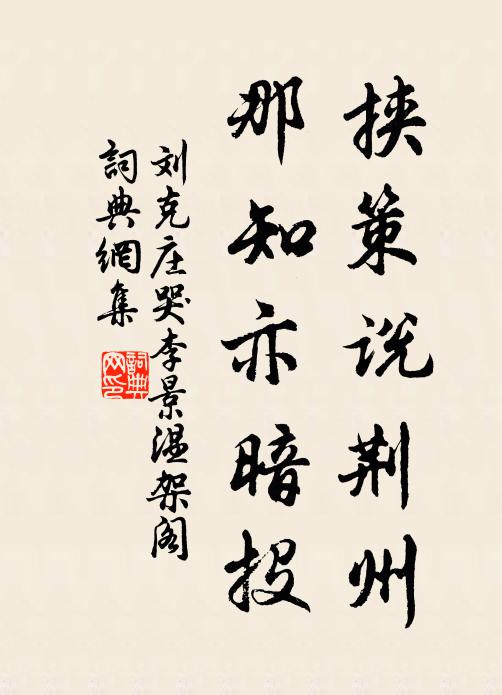 挟策说荆州
那知亦暗投
刘克庄哭李景温架阁
詞典網集
詞典
网印